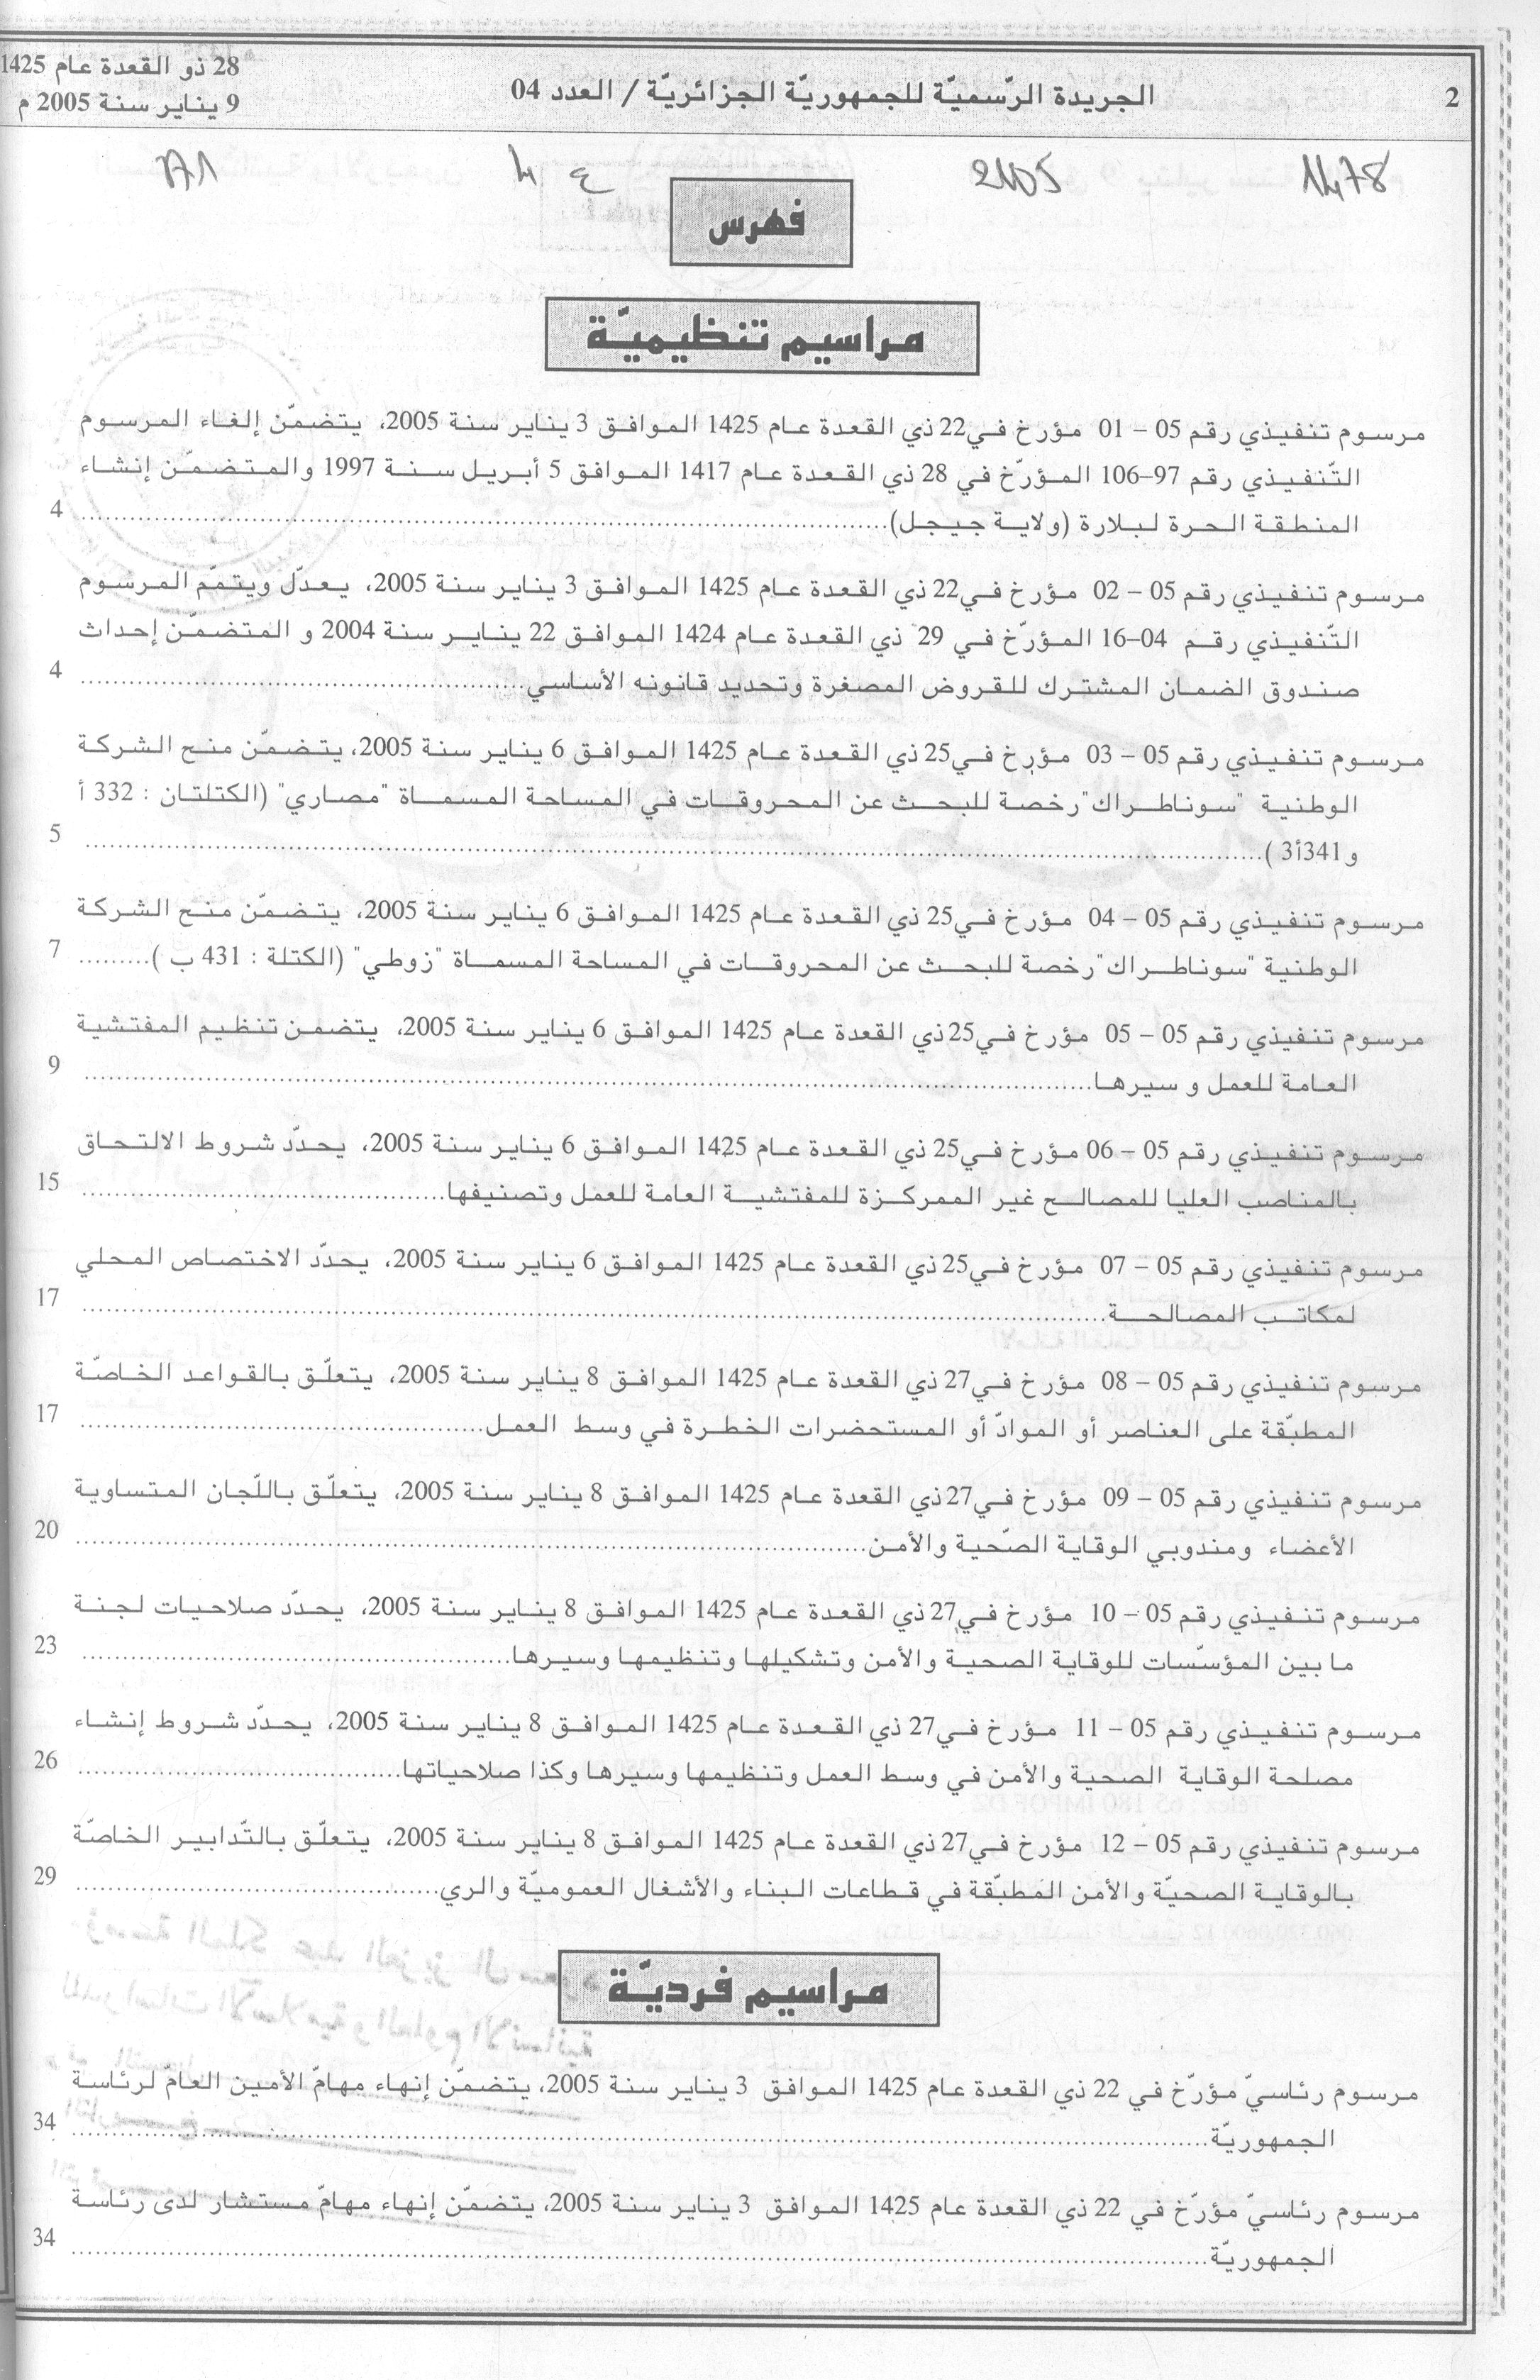 2
الجريدة الرّسميّة للجمهوريّة الجزائريّة / العدد 04
28 ذو القعدة عام 1425
9 يناير سنة 2005 م
1478
2005
ع 4
فهرس
مراسيم تنظيميّة
مرسوم تنفيذي رقم 05 – 01 مؤرخ في 22 ذي القعدة عام 1425 الموافق 3 يناير سنة 2005، يتضمّن إلغاء المرسوم
التّنفيذي رقم 97–106 المؤرّخ في 28 ذي القعدة عام 1417 الموافق 5 أبريل سنة 1997 والمتضمّن إنشاء
المنطقة الحرة لبلارة (ولاية جيجل).......... 4
مرسوم تنفيذي رقم 05 – 02 مؤرخ في 22 ذي القعدة عام 1425 الموافق 3 يناير سنة 2005، يعدّل ويتمّم المرسوم
التّنفيذي رقم 04–16 المؤرّخ في 29 ذي القعدة عام 1424 الموافق 22 يناير سنة 2004 و المتضمّن إحداث
صندوق الضمان المشترك للقروض المصغرة وتحديد قانونه الأساسي.......... 4
مرسوم تنفيذي رقم 05 – 03 مؤرخ في 25 ذي القعدة عام 1425 الموافق 6 يناير سنة 2005، يتضمّن منح الشركة
الوطنية "سوناطراك" رخصة للبحث عن المحروقات في المساحة المسماة "مصاري" (الكتلتان : 332 أ
و 341أ3 ).......... 5
مرسوم تنفيذي رقم 05 – 04 مؤرخ في 25 ذي القعدة عام 1425 الموافق 6 يناير سنة 2005، يتضمّن منح الشركة
الوطنية "سوناطراك" رخصة للبحث عن المحروقات في المساحة المسماة "زوطي" (الكتلة : 431 ب ).......... 7
مرسوم تنفيذي رقم 05 – 05 مؤرخ في 25 ذي القعدة عام 1425 الموافق 6 يناير سنة 2005، يتضمن تنظيم المفتشية
العامة للعمل و سيرها.......... 9
مرسوم تنفيذي رقم 05 – 06 مؤرخ في 25 ذي القعدة عام 1425 الموافق 6 يناير سنة 2005، يحدّد شروط الالتحاق
بالمناصب العليا للمصالح غير الممركزة للمفتشية العامة للعمل وتصنيفها.......... 15
مرسوم تنفيذي رقم 05 – 07 مؤرخ في 25 ذي القعدة عام 1425 الموافق 6 يناير سنة 2005، يحدّد الاختصاص المحلي
لمكاتب المصالحة.......... 17
مرسوم تنفيذي رقم 05 – 08 مؤرخ في 27 ذي القعدة عام 1425 الموافق 8 يناير سنة 2005، يتعلّق بالقواعد الخاصّة
المطبّقة على العناصر أو الموادّ أو المستحضرات الخطرة في وسط العمل.......... 17
مرسوم تنفيذي رقم 05 – 09 مؤرخ في 27 ذي القعدة عام 1425 الموافق 8 يناير سنة 2005، يتعلّق باللّجان المتساوية
الأعضاء ومندوبي الوقاية الصّحية والأمن.......... 20
مرسوم تنفيذي رقم 05 – 10 مؤرخ في 27 ذي القعدة عام 1425 الموافق 8 يناير سنة 2005، يحدّد صلاحيات لجنة
ما بين المؤسّسات للوقاية الصحية والأمن وتشكيلها وتنظيمها وسيرها.......... 23
مرسوم تنفيذي رقم 05 – 11 مؤرخ في 27 ذي القعدة عام 1425 الموافق 8 يناير سنة 2005، يحدّد شروط إنشاء
مصلحة الوقاية الصحية والأمن في وسط العمل وتنظيمها وسيرها وكذا صلاحياتها.......... 26
مرسوم تنفيذي رقم 05 – 12 مؤرخ في 27 ذي القعدة عام 1425 الموافق 8 يناير سنة 2005، يتعلّق بالتّدابير الخاصّة
بالوقاية الصحيّة والأمن المطبّقة في قطاعات البناء والأشغال العموميّة والري.......... 29
مراسيم فرديّة
مرسوم رئاسيّ مؤرّخ في 22 ذي القعدة عام 1425 الموافق 3 يناير سنة 2005، يتضمّن إنهاء مهامّ الأمين العامّ لرئاسة
الجمهوريّة.......... 34
مرسوم رئاسيّ مؤرّخ في 22 ذي القعدة عام 1425 الموافق 3 يناير سنة 2005، يتضمّن إنهاء مهامّ مستشار لدى رئاسة
الجمهوريّة.......... 34